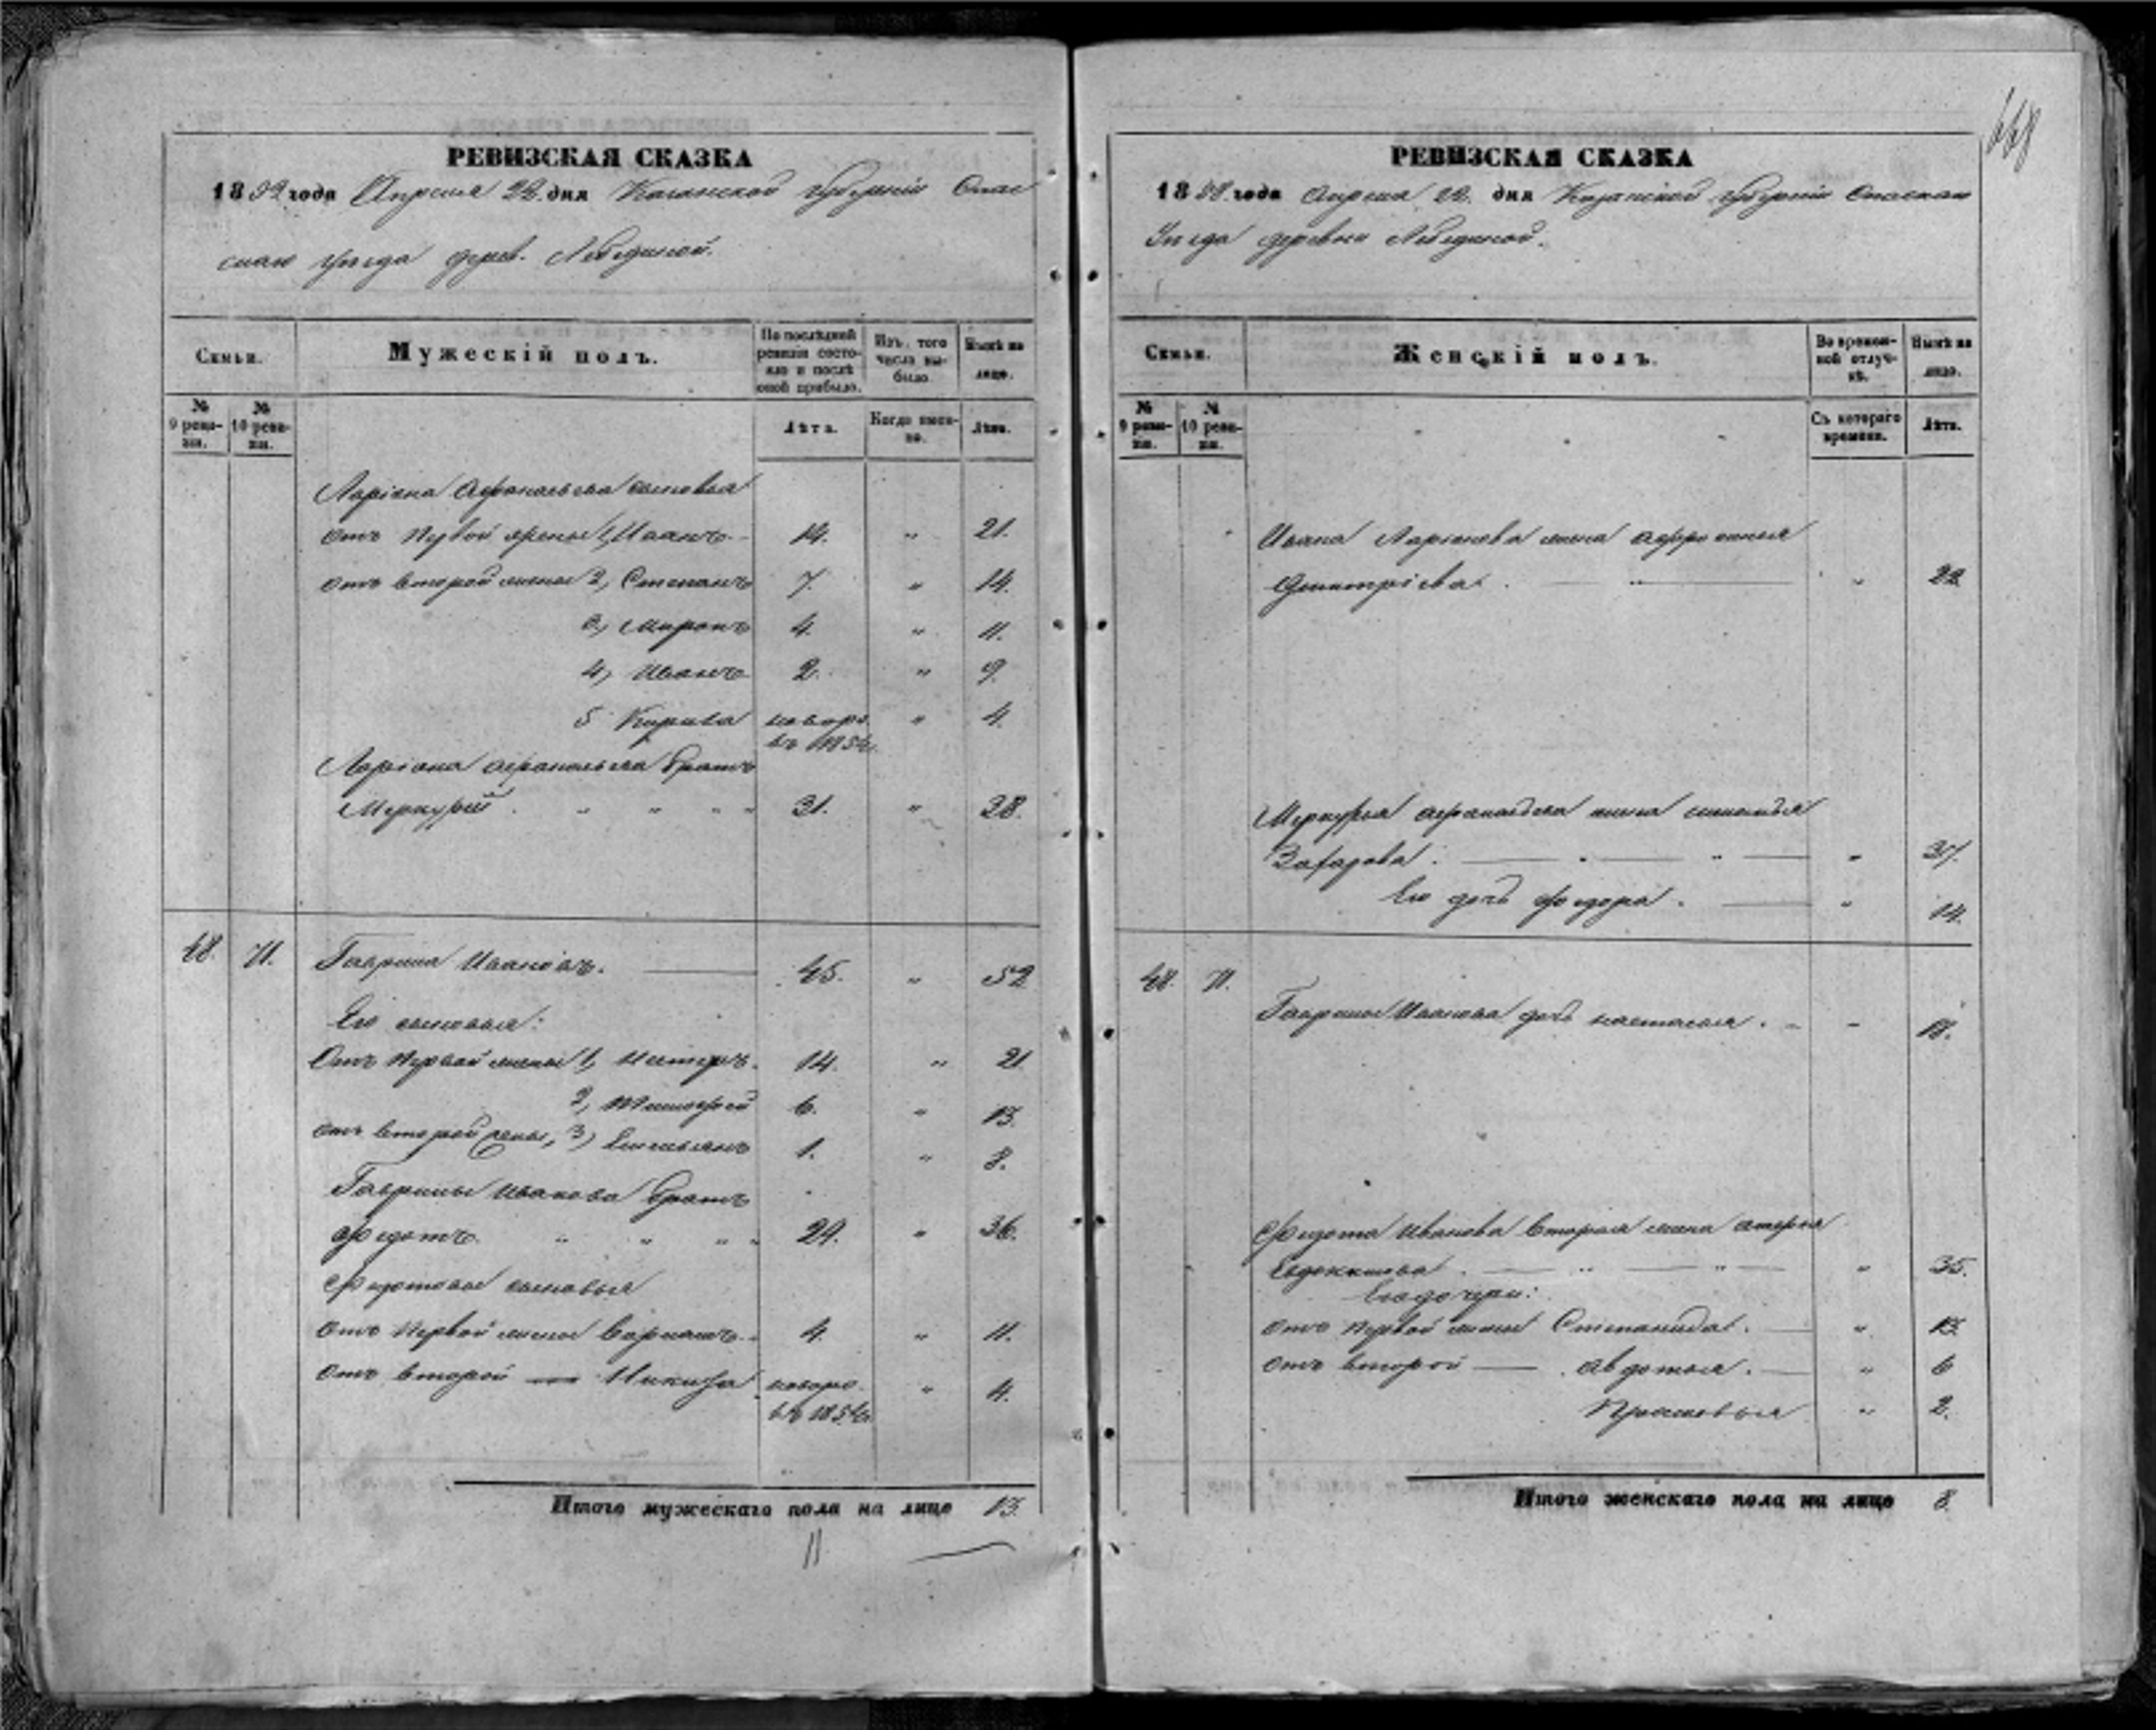 668
РЕВИЗСКАЯ СКАЗКА
1858 года Апреля 22 дня Казанской Губерніи Спас
скаго уѣзда дерев. Лебединой.
Семьи.
Мужескій полъ.
По послѣдней ревизіи состояло и послѣ оной прибыло.
Изъ того числа выбыло.
Нынѣ на лицо.
№ 9 ревизіи.
№ 10 ревизіи.
Лѣта.
Когда именно.
Лѣта.
Ларіона Афанасьева сыновья
отъ Первой жены 1, Иванъ 14. " 21.
отъ второй жены 2, Степанъ 7. " 14.
3, Миронъ 4. " 11.
4, Иванъ 2. " 9.
5 Кирила новоро. въ 1854. " 4.
Ларіона Афанасьева братъ
Меркурій . " " " " 31. " 38.
48. 71. Гаврила Ивановъ. 45. " 52
Его сыновья:
Отъ Первой жены 1, Нестеръ. 14. " 21
2, Тимофей 6. " 13.
отъ второй жены, 3, Емельянъ 1. " 8.
Гаврилы Иванова братъ
Федотъ. " " " " 29. " 36.
Федотовы сыновья
отъ Первой жены 4. " 11.
отъ второй — Никита новоро. въ 1854. " 4.
Итого мужескаго пола на лицо 13.
11
РЕВИЗСКАЯ СКАЗКА
1858 года Апреля 22. дня Казанской Губерніи Спаскаго
Уѣзда деревни Лебединой.
Семьи.
Женскій полъ.
Во временной отлучкѣ.
Нынѣ на лицо.
№ 9 ревизіи.
№ 10 ревизіи.
Съ котораго времени.
Лѣта.
Ивана Ларіонова жена
Дмитріева. " 22
Меркурья Афанасьева жена
Захарова. " 37.
Его дочь Федора. " 14.
48. 71.
Гаврилы Иванова дочь Настасья. " 18.
Федота Иванова вторая жена
Евдокимова. " 35.
Его дочери:
отъ Первой жены Степанида. " 13.
отъ второй — Авдотья. " 6
Прасковья " 2.
Итого женскаго пола на лицо 8.